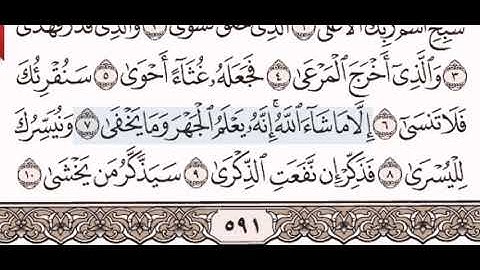 سَبِّحِ ٱسۡمَ رَبِّكَ ٱلۡأَعۡلَى ١ ٱلَّذِي خَلَقَ فَسَوَّىٰ ٢ وَٱلَّذِي قَدَّرَ فَهَدَىٰ
٣ وَٱلَّذِيٓ أَخۡرَجَ ٱلۡمَرۡعَىٰ ٤ فَجَعَلَهُۥ غُثَآءً أَحۡوَىٰ ٥ سَنُقۡرِئُكَ
فَلَا تَنسَىٰٓ ٦ إِلَّا مَا شَآءَ ٱللَّهُۚ إِنَّهُۥ يَعۡلَمُ ٱلۡجَهۡرَ وَمَا يَخۡفَىٰ ٧ وَنُيَسِّرُكَ
لِلۡيُسۡرَىٰ ٨ فَذَكِّرۡ إِن نَّفَعَتِ ٱلذِّكۡرَىٰ ٩ سَيَذَّكَّرُ مَن يَخۡشَىٰ ١٠
٥٩١